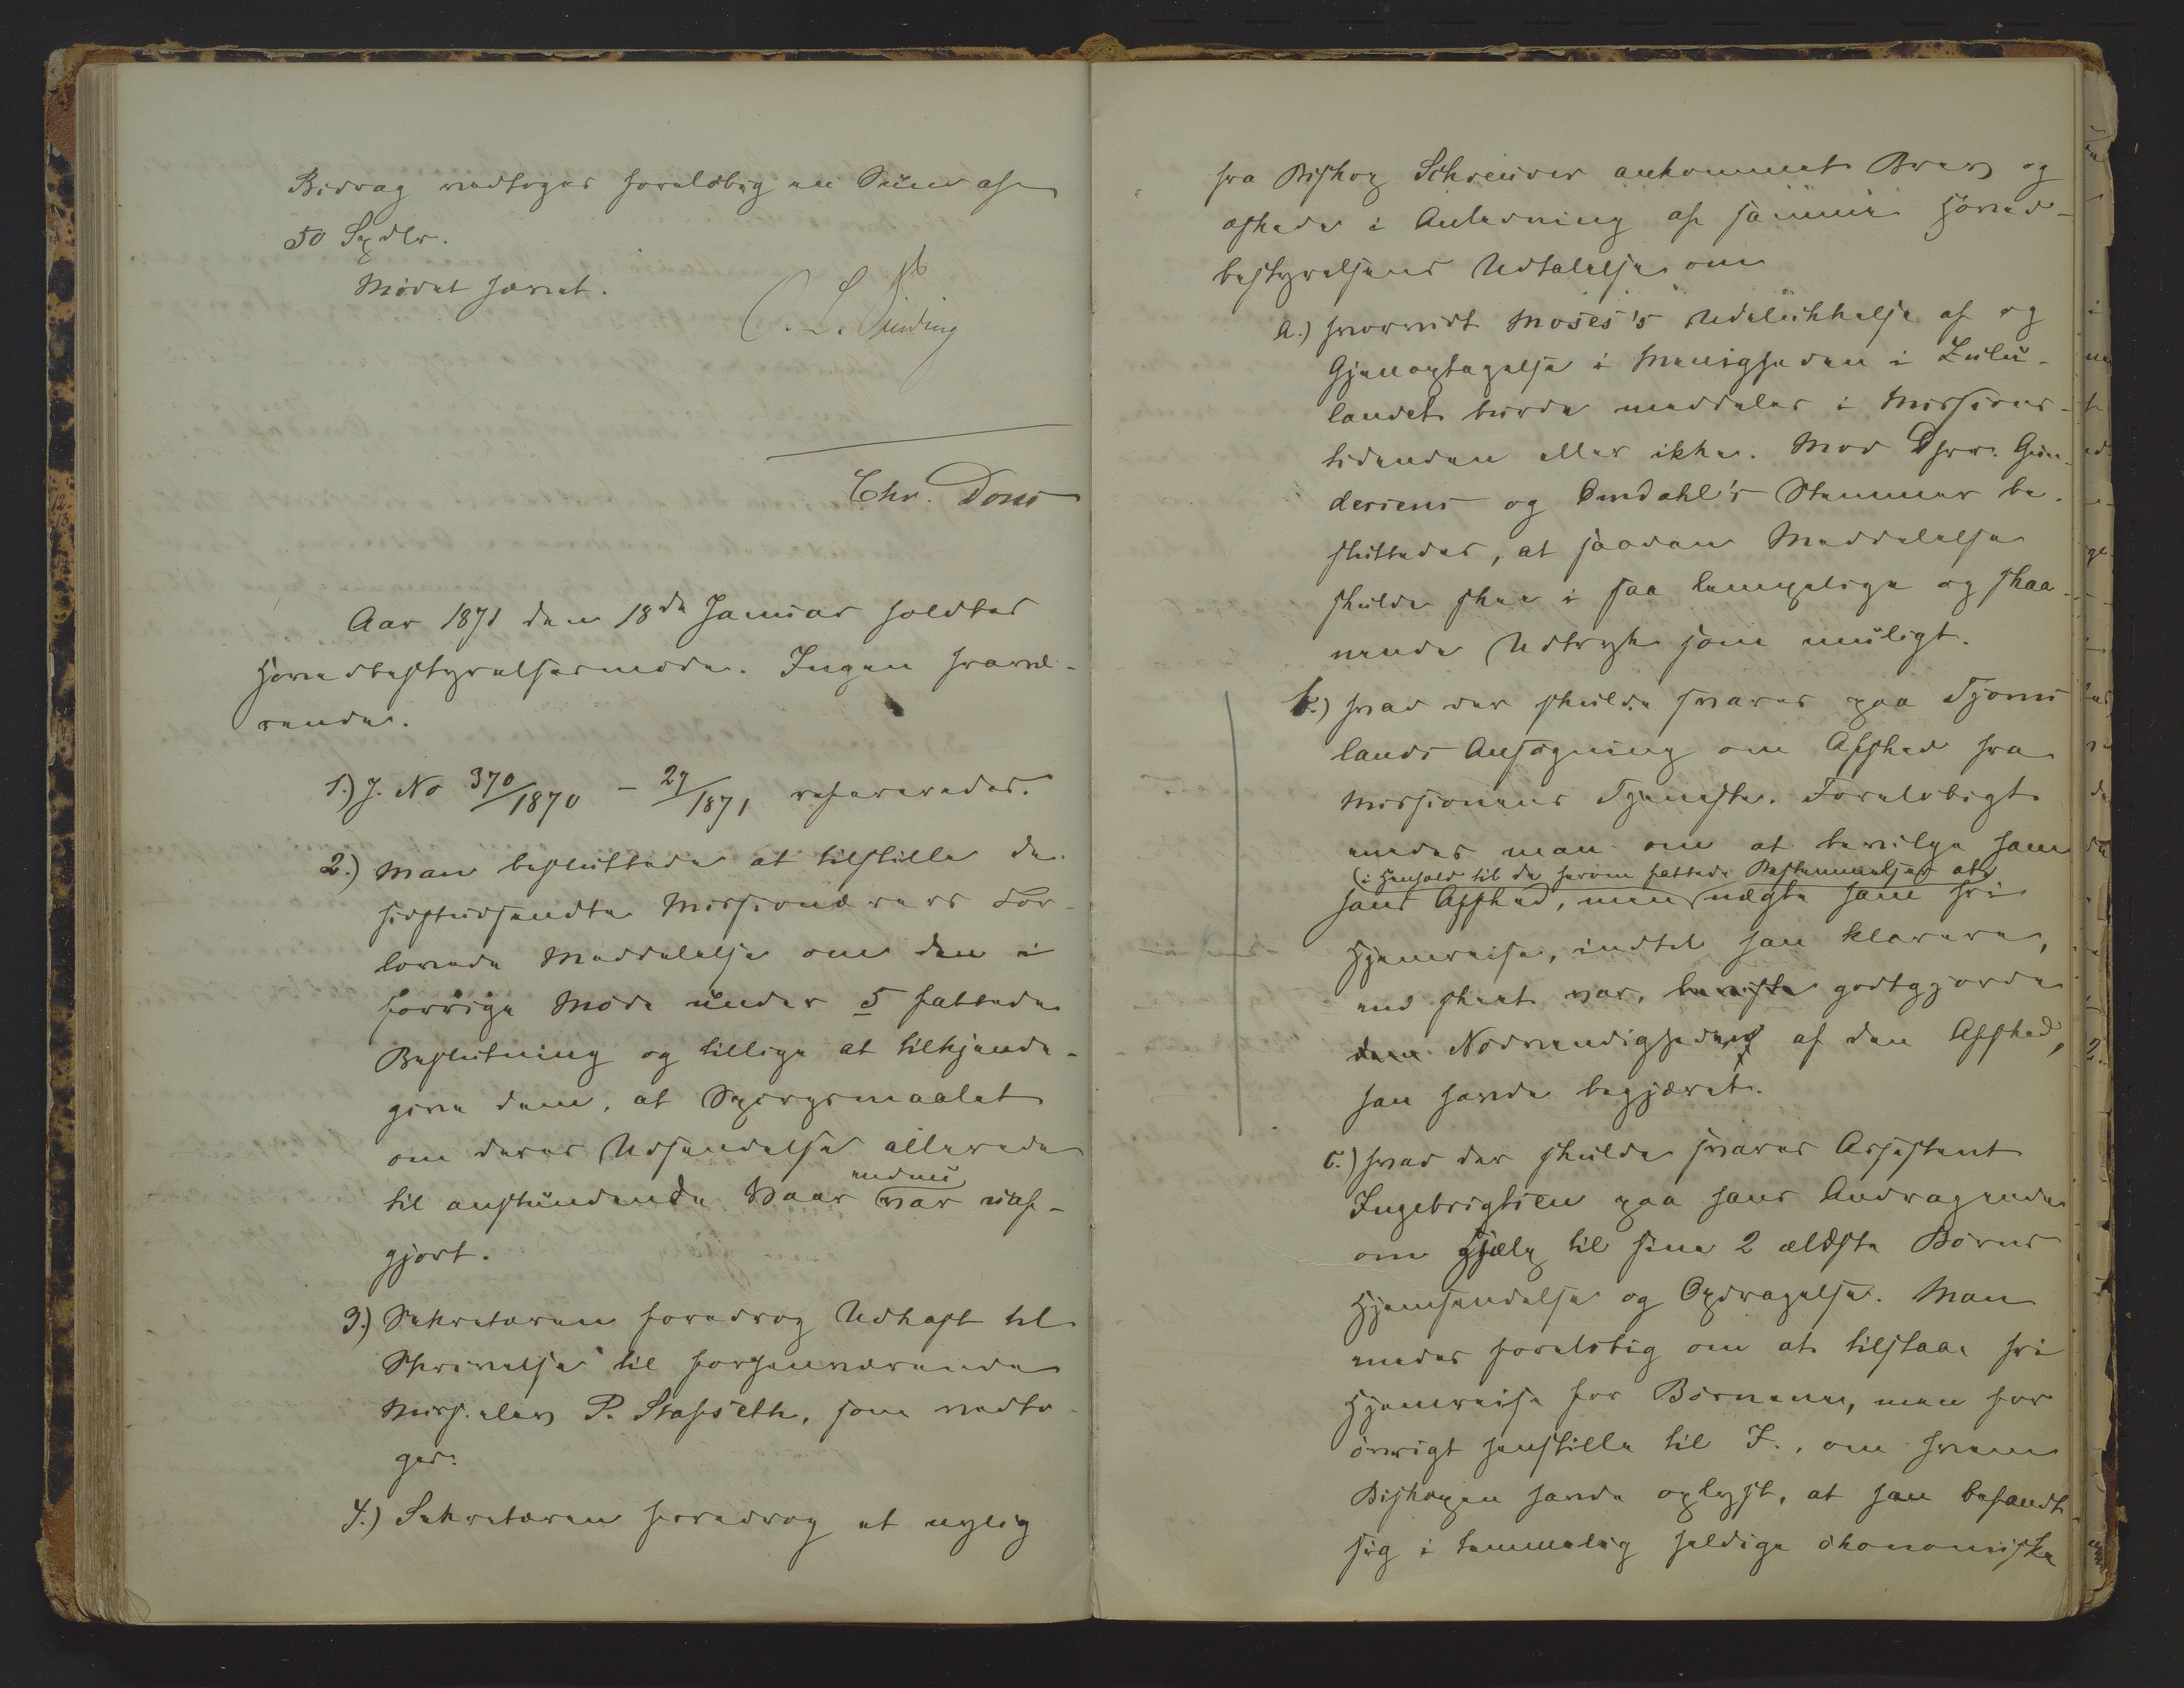 Bidrag vedtoges foreløbig en Sum af
50 Spdlr.
Mødet hævet.
C. L. Sinding
Chr. Dons
Aar 1871 den 18de Januar holdtes
Hovedbestyrelsesmøde. Ingen fravæ-
rende.
1.) J. No 370/1870 - 27/1871 refereredes.
2.) Man besluttede at tilstille de
sidstudsendte Missionærers For-
lovede Meddelelse om den i
forrige Møde under 5 fattede
Beslutning og tillige at tilkjende-
give dem, at Spørgsmaalet
om deres Udsendelse allerede
endnu
til anstundende Vaar var uaf-
gjort.
3.) Sekretæren foredrog Udkast til
Skrivelse til forhenværende
Miss. elev P. Stafseth, som vedto-
ges.
4.) Sekretæren foredrog et nylig
fra Biskop Schreuder ankommet Brev og
æskede i Anledning af samme Hoved-
bestyrelsens Udtalelse om
a.) hvorvidt Moses's Udelukkelse af og
Gjenoptagelse i Menigheden i Zulu-
landet burde meddeles i Missions-
tidenden eller ikke. Mod DHrr. Gun-
dersens og Omdahl's Stemmer be-
sluttedes, at saadan Meddelelse
skulde skee i saa lempelige og skaa-
nende Udtryk som muligt.
b.) hvad der skulde svares paa Tjoms
lands Ansøgning om Afsked fra
Missionens Tjeneste. Foreløbigt
enedes man om at bevilge ham
(i Henhold til de herom fattede Bestemmelser at)
hans Afsked, men nægte ham fri
Hjemreise, indtil han klarere,
end skeet var, beviste godtgjorde
dem Nødvendigheden af den Afsked,
han havde begjæret.
c.) hvad der skulde svares Assistent
Ingebrigtsen paa hans Andragende
om Hjælp til sine 2 ældste Børns
Hjemsendelse og Opdragelse. Man
enedes foreløbig om at tilstaae fri
Hjemreise for Børnene, men for
øvrigt henstille til I., om hvem
Biskopen havde oplyst, at han befandt
sig i temmelig heldige økonomiske